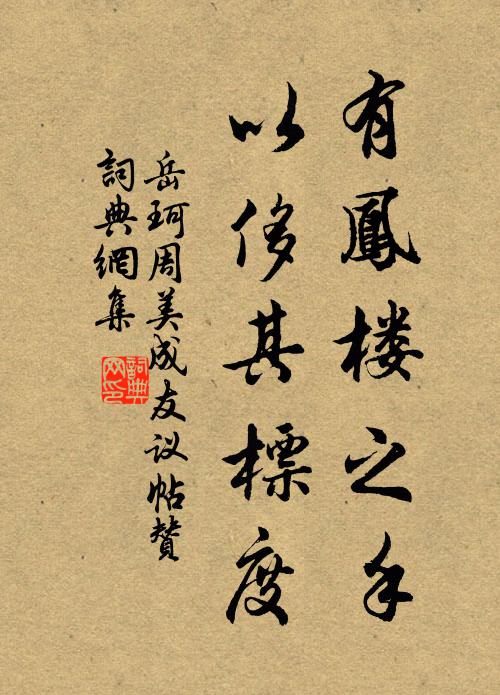 有鳳楼之手
以侈其標度
岳珂周美成友议帖賛
詞典網集
詞典
网印